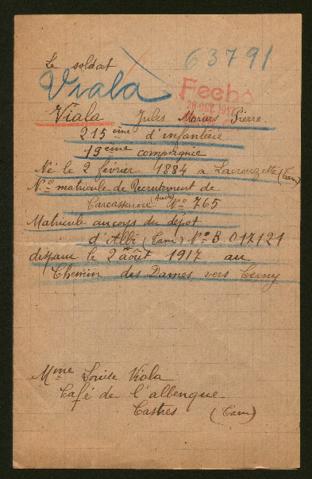 Le soldat
63791
Viala
Fecha
Viala Jules Marius Pierre
215ème d'infanterie
19ème compagnie
Né le 2 février 1884 a Lacrouzette (Tarn)
N° matricule de Recrutement de
Carcassonne Aude N° 765
Matricule au corps du dépôt
d'Albi (Tarn) N° B. 017121
disparu le 2 août 1917 au
Chemin des Dames vers Cerny
Mme Louise Viala
Café de l'albenque
Castres (Tarn)